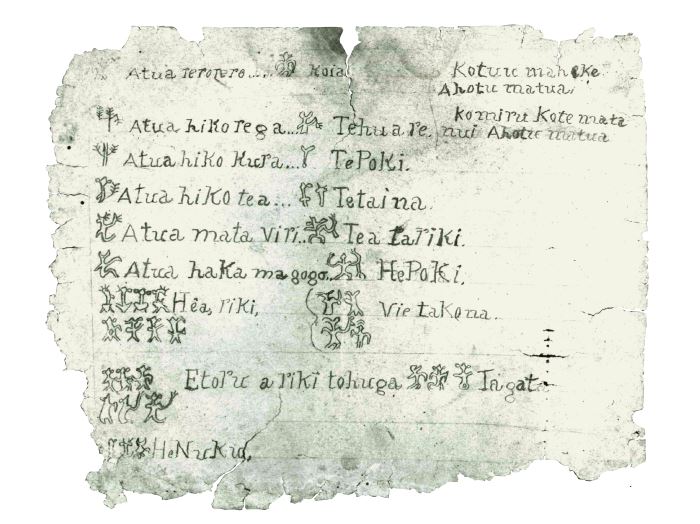 Atua rerorero.... Koia Kotuu maheke
Ahotu matua.
Atua hiko rega... Tehuare. komiru Kote mata
nui Ahotu matua
Atua hiko Kura... TePoKi.
Atua hiKo tea... Tetaina.
Atua mata viri.. Tea tariki.
Atua haKa magogo.. HePoKi.
Hêa, riki, Vie taKona.
Etoru a riki tohuga Tagata
HeNuKu,